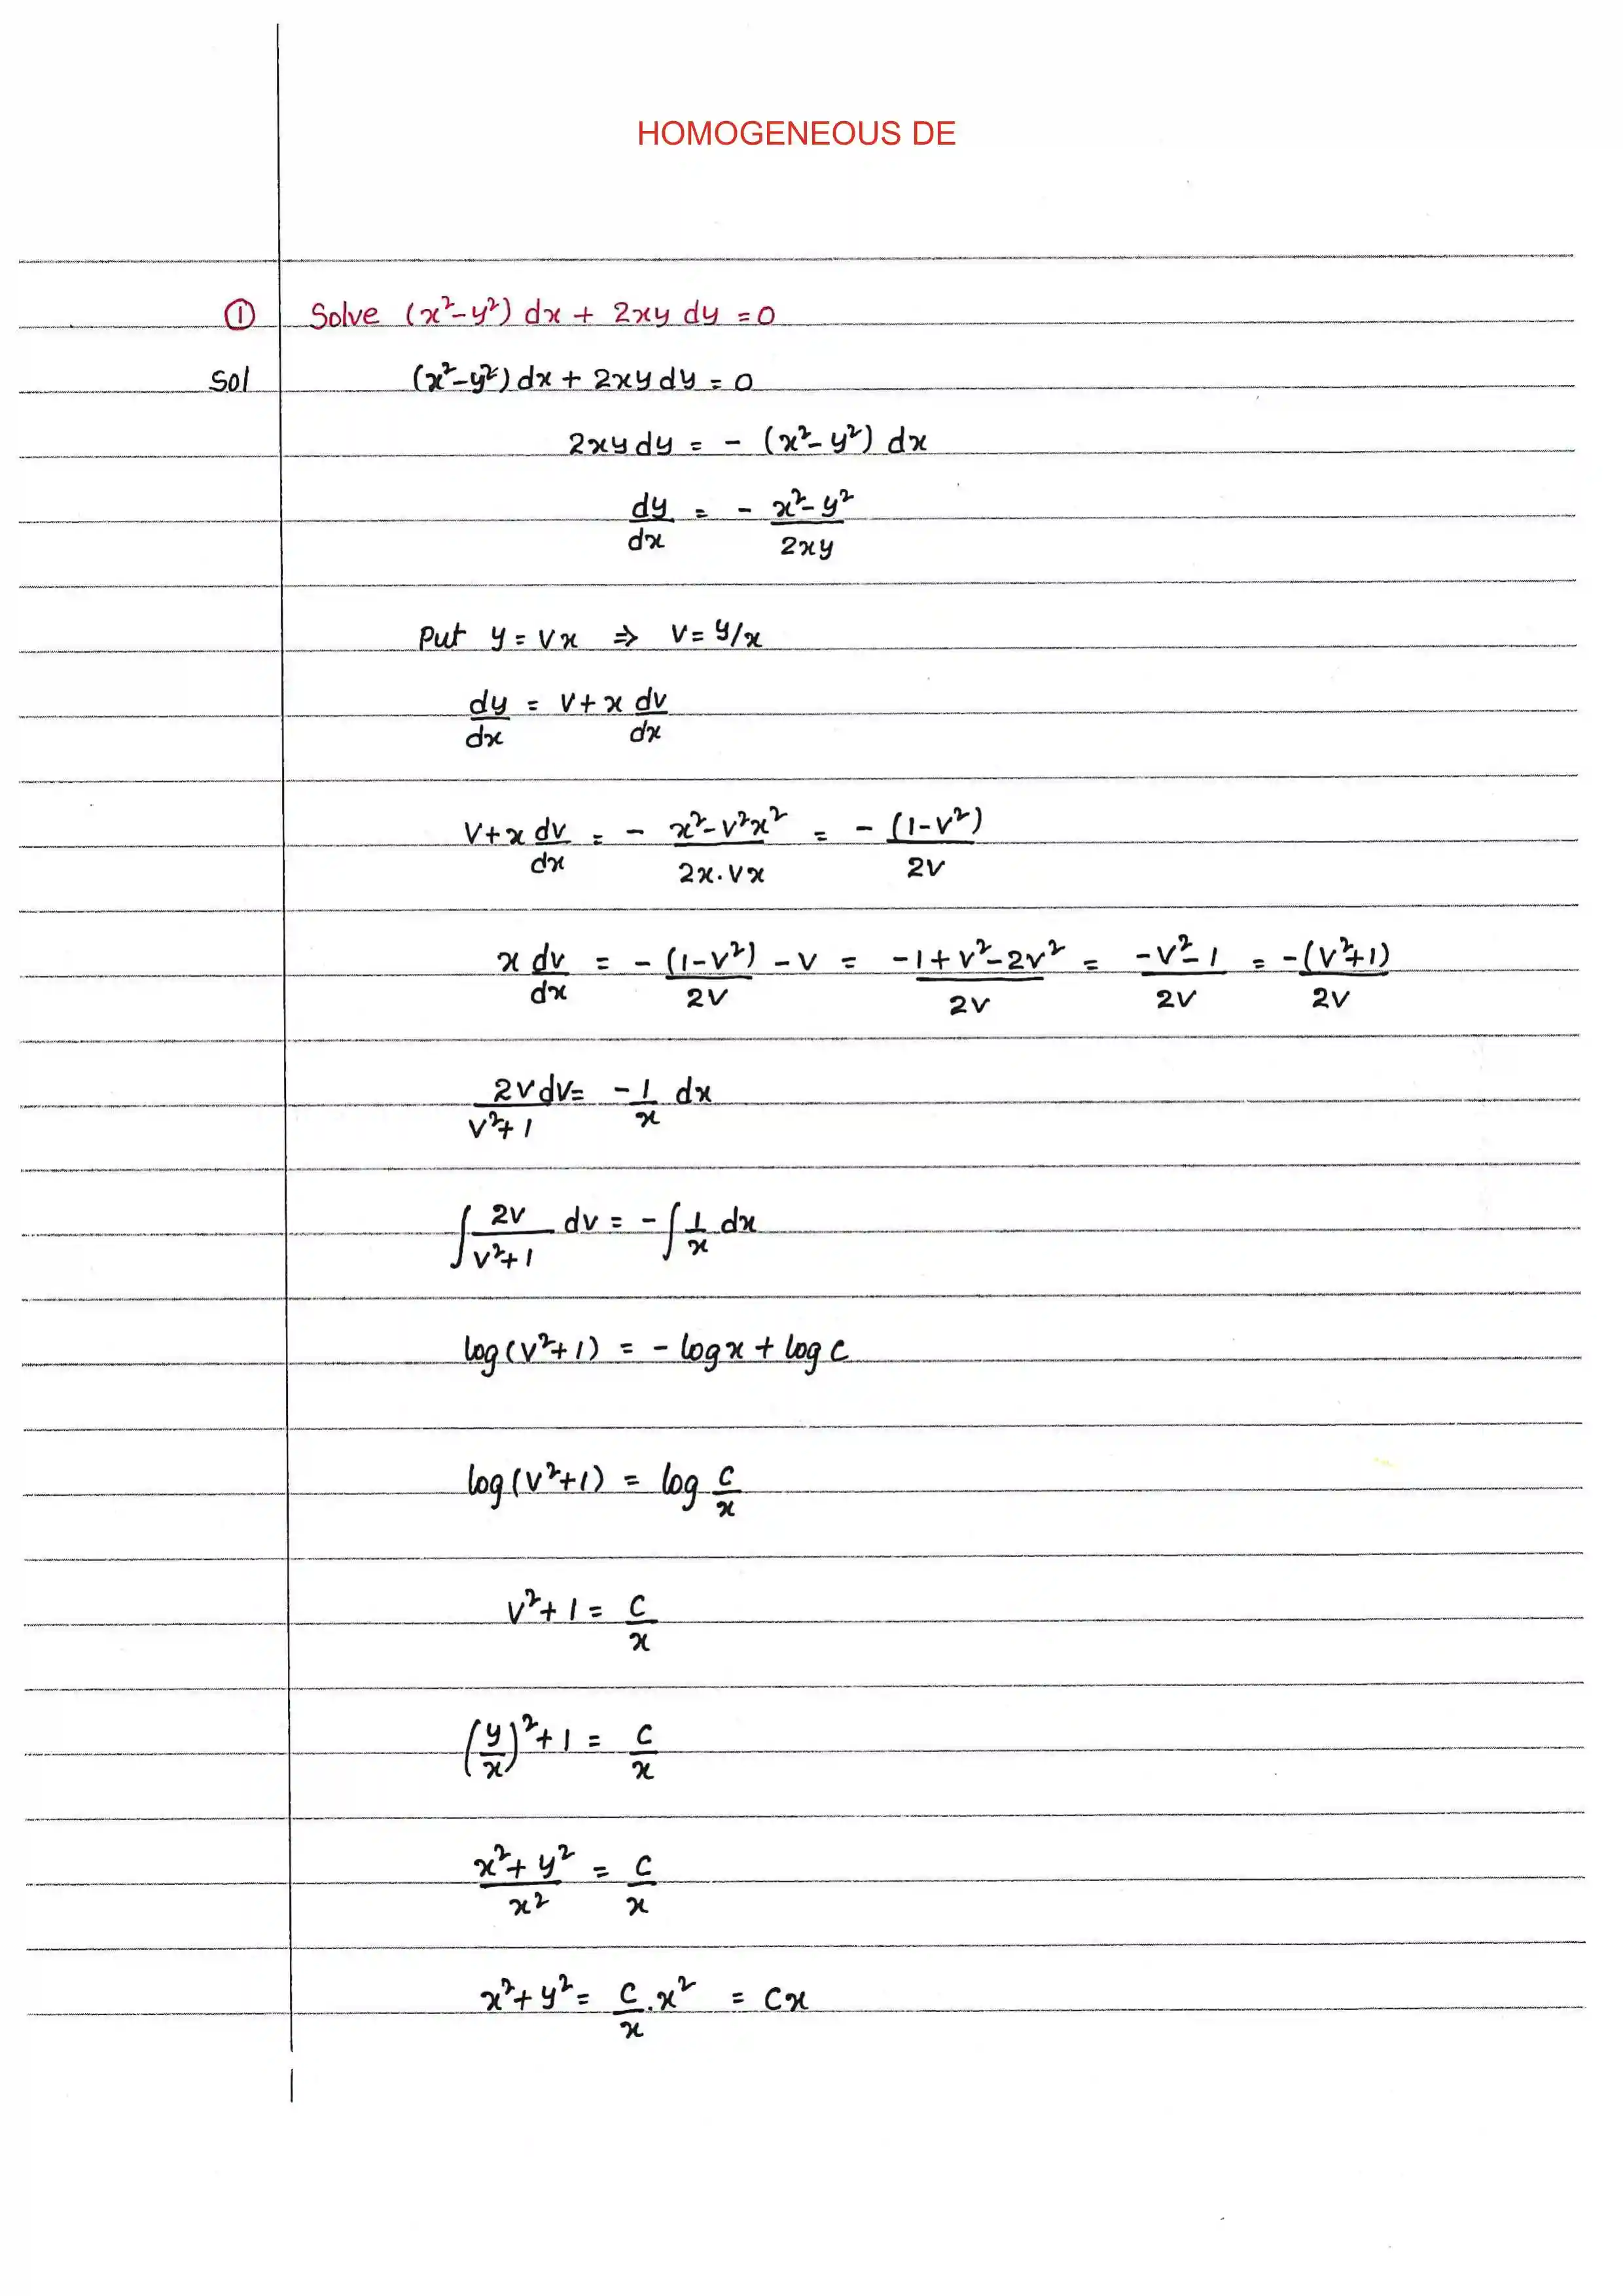 HOMOGENEOUS DE
① Solve (x²-y²) dx + 2xy dy = 0
Sol (x²-y²) dx + 2xy dy = 0
2xy dy = - (x²-y²) dx
dy/dx = - (x²-y²)/2xy
Put y = vx ⇒ v = y/x
dy/dx = v + x dv/dx
v + x dv/dx = - (x²-v²x²)/(2x.vx) = - (1-v²)/2v
x dv/dx = - (1-v²)/2v - v = (-1+v²-2v²)/2v = (-v²-1)/2v = -(v²+1)/2v
2v dv/(v²+1) = -1/x dx
∫ 2v/(v²+1) dv = - ∫ 1/x dx
log(v²+1) = - log x + log c
log(v²+1) = log c/x
v²+1 = c/x
(y/x)²+1 = c/x
(x²+y²)/x² = c/x
x²+y² = c/x . x² = cx